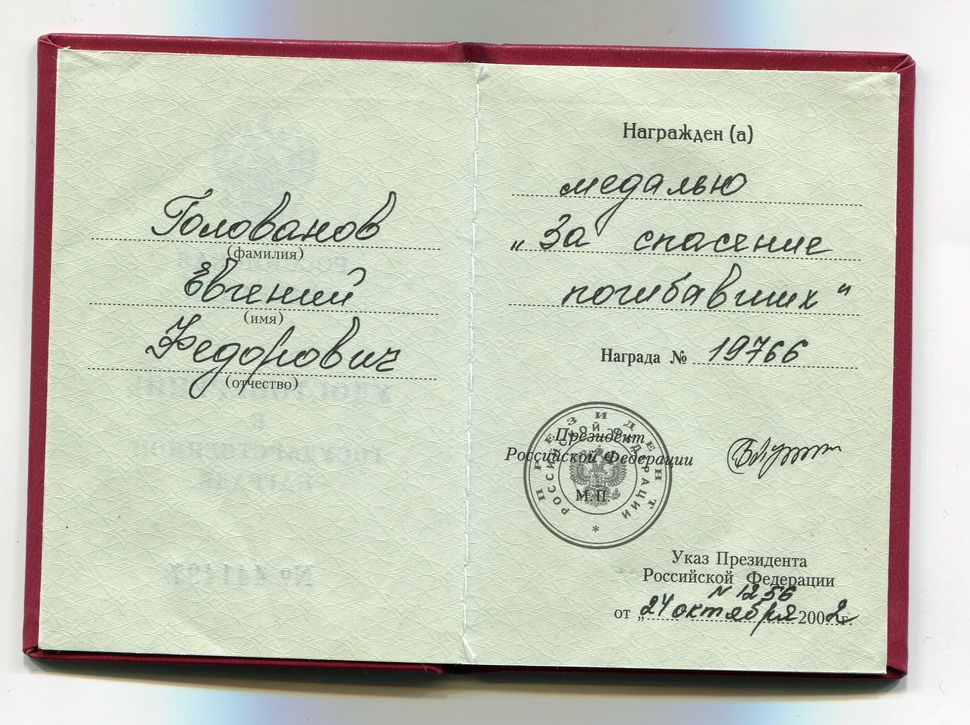 Голованов
(фамилия)
Евгений
(имя)
Федорович
(отчество)
Награжден (а)
медалью
„За спасение
погибавших"
Награда № 19766
Президент
Российской Федерации
М.П.
ПРЕЗИДЕНТ
РОССИЙСКОЙ ФЕДЕРАЦИИ
Указ Президента
Российской Федерации
N 1256
от „24 октября 2002 г.